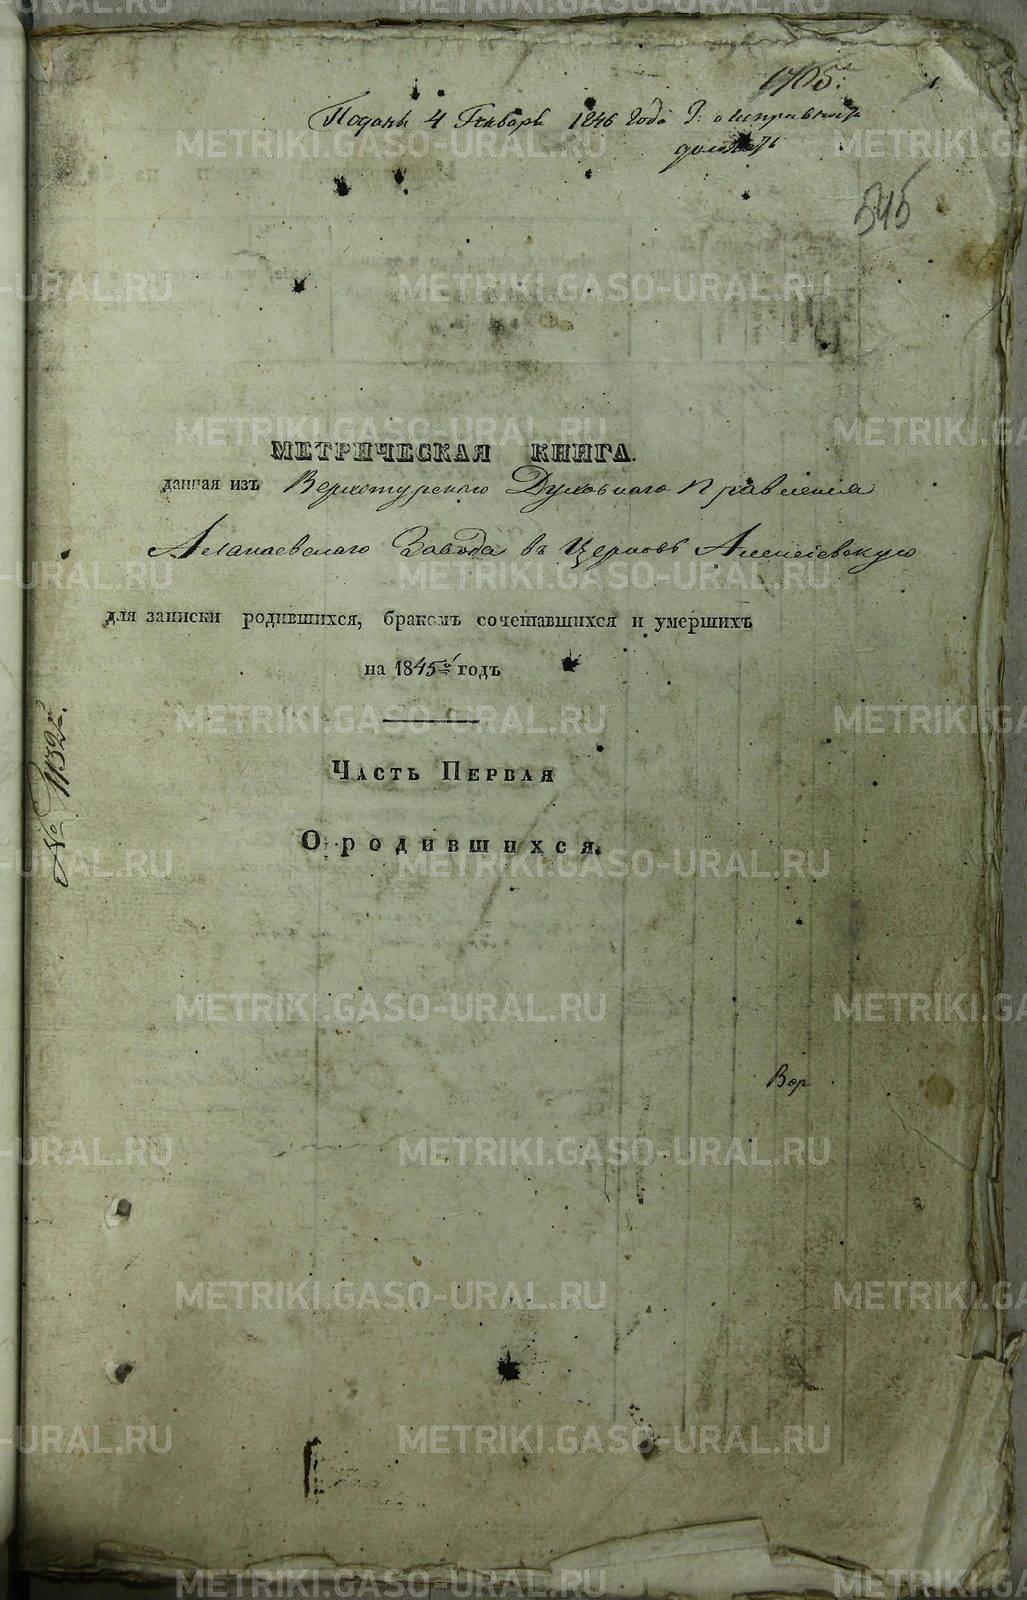 1705.
Поданъ 4 Генваря 1846 года
545
МЕТРИЧЕСКАЯ КНИГА.
данная изъ Верхотурскаго Духовнаго Правления
Алапаевскаго Завода въ Церковь Алексіевскую
для записки родившихся, бракомъ сочетавшихся и умершихъ
на 1845й годъ
№ 1132
Часть Первая
О родившихся.
Вер
METRIKI.GASO-URAL.RU